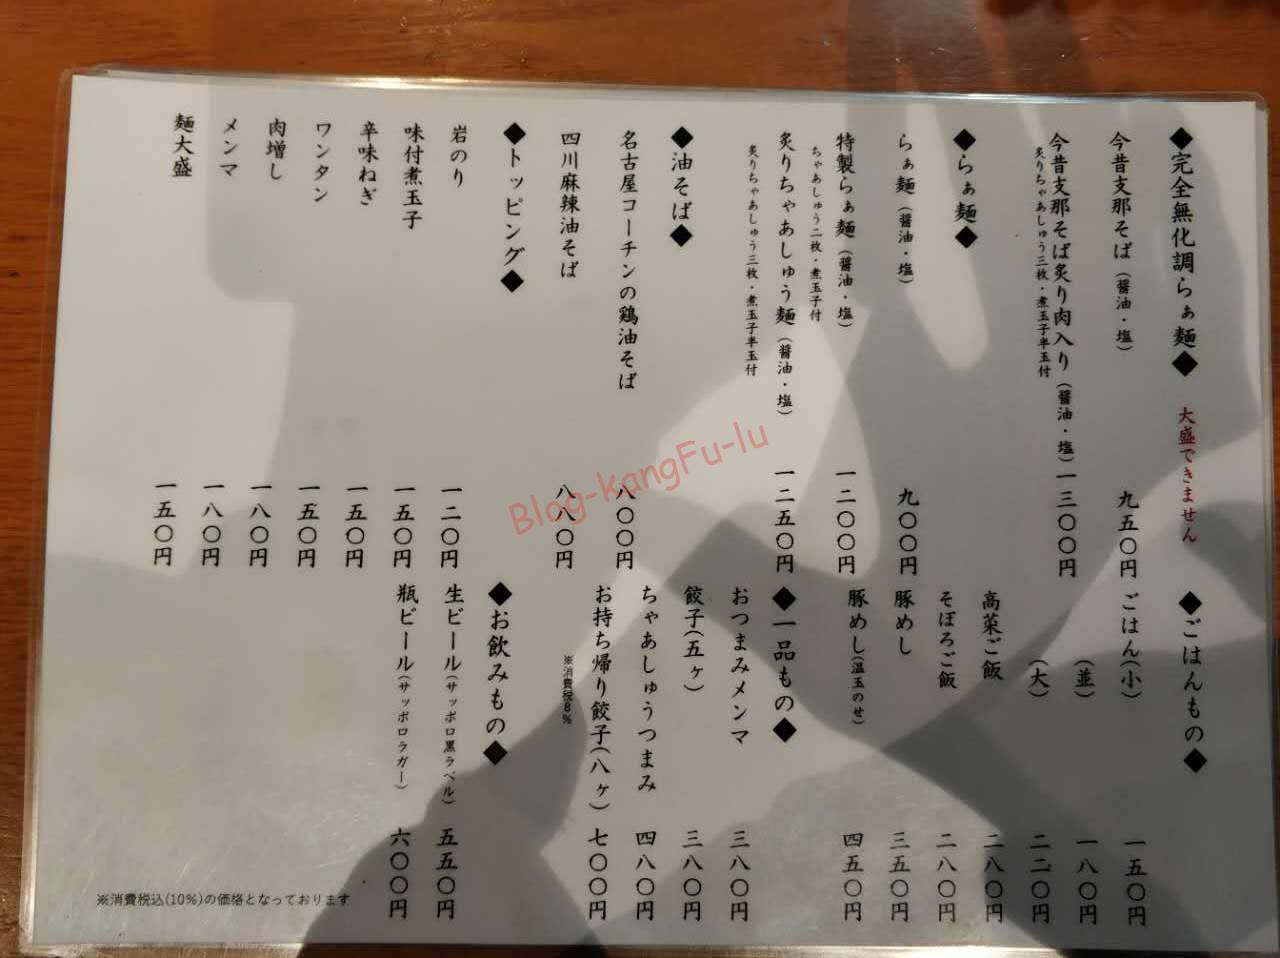 ◆完全無化調らぁ麺◆ 大盛できません
今昔支那そば（醤油・塩） 九五〇円
今昔支那そば炙り肉入り（醤油・塩） 一三〇〇円
炙りちゃあしゅう三枚・煮玉子半玉付
◆らぁ麺◆
らぁ麺（醤油・塩） 九〇〇円
特製らぁ麺（醤油・塩） 一二〇〇円
ちゃあしゅう二枚・煮玉子付
炙りちゃあしゅう麺（醤油・塩） 一二五〇円
炙りちゃあしゅう三枚・煮玉子半玉付
◆油そば◆
名古屋コーチンの鶏油そば 八〇〇円
四川麻辣油そば 八八〇円
◆トッピング◆
岩のり 一二〇円
味付煮玉子 一五〇円
辛味ねぎ 一五〇円
ワンタン 一五〇円
肉増し 一八〇円
メンマ 一八〇円
麺大盛 一五〇円
◆ごはんもの◆
ごはん（小） 一五〇円
（並） 一八〇円
（大） 二二〇円
高菜ご飯 二八〇円
そぼろご飯 二八〇円
豚めし 三五〇円
豚めし（温玉のせ） 四五〇円
◆一品もの◆
おつまみメンマ 三八〇円
餃子（五ヶ） 三八〇円
ちゃあしゅうつまみ 四八〇円
お持ち帰り餃子（八ヶ） 七〇〇円
※消費税8％
◆お飲みもの◆
生ビール（サッポロ黒ラベル） 五五〇円
瓶ビール（サッポロラガー） 六〇〇円
※消費税込(10%)の価格となっております
Blog-kangFu-lu